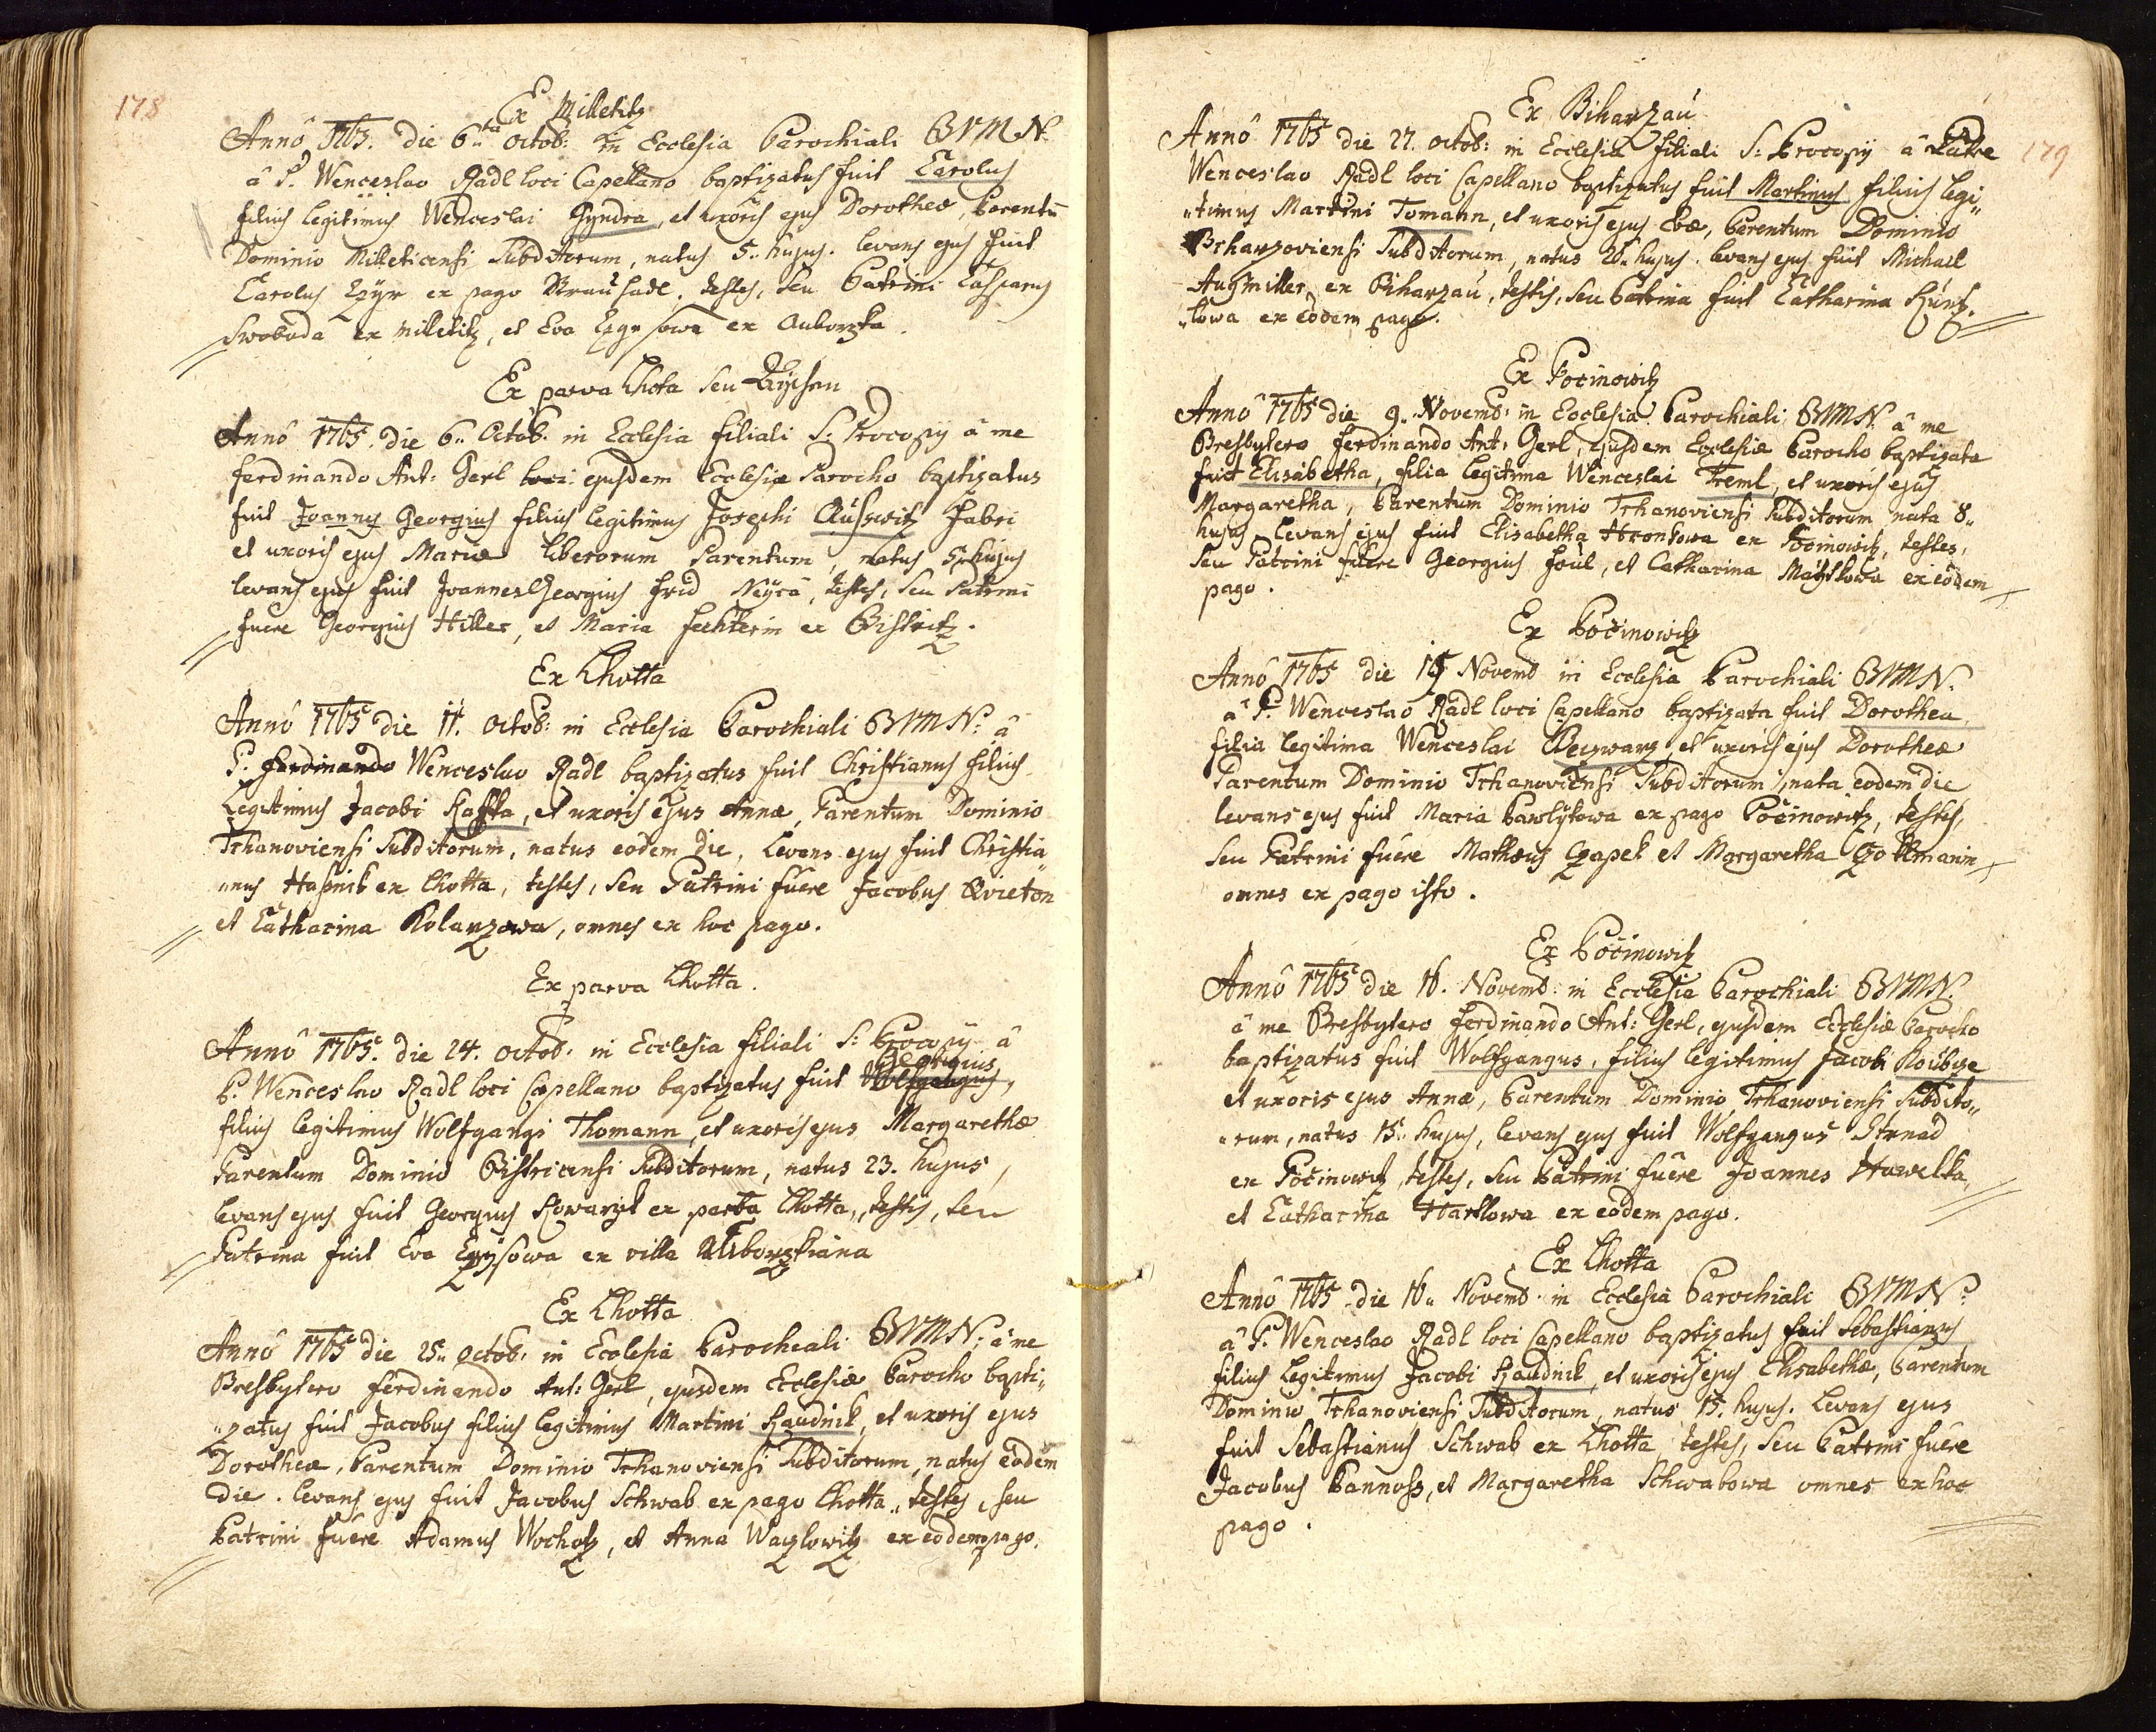 178
Ex Milletitz
Annô 1765. die 6ta Octob: in Ecclesia Parochiali BVMN.
â P. Wenceslao Radl loci Capellano baptizatus fuit Carolus
filius legitimus Wenceslai Gyndra, et uxoris ejus Dorotheæ, Parentū
Dominio Milleticensi Subditorum, natus 5.. hujus. levans ejus fuit
Carolus ex pago testes, seu Patrini Casparus
Swoboda ex Milletitz, et Eva ex Auborzka.
Ex parva Lhota seu
Annô 1765. die 6.. Octob. in Ecclesia filiali S: Procopij â me
Ferdinando Ant: Gerl loci ejusdem Ecclesiæ Parocho baptizatus
fuit Joannes Georgius filius legitimus Josephi Fabri
et uxoris ejus Mariæ liberorum Parentum, natus 5.. hujus
levans ejus fuit Joannes Georgius Frid testes, seu Patrini
fuere Georgius Hiller, et Maria Fechterin ex Bistritz.
Ex Lhotta
Annô 1765 die 11. Octob: in Ecclesia Parochiali BVMN: â
P. Ferdinando Wenceslao Radl baptizatus fuit Christianus filius
Legitimus Jacobi Kaffka, et uxoris ejus Annæ, Parentum Dominio
Trhanoviensi Subditorum, natus eodem die, Levans ejus fuit Christia„
„nus Haßnik ex Lhotta, testes, seu Patrini fuêre Jacobus Qvieton
et Catharina Kolarzowa, omnes ex hoc pago.
Ex parva Lhotta.
Annô 1765. die 24. Octob: in Ecclesia filiali S: Procopij â
Georgius
P. Wenceslao Radl loci Capellano baptizatus fuit Wolfgangus,
filius legitimus Wolfgangi Thomann, et uxoris ejus Margarethæ
Parentum Dominio Bistricensi Subditorum, natus 23. hujus,
levans ejus fuit Georgius Kowarzik ex parva Lhotta, testis, seu
Patrina fuit Eva ex villa
Ex Lhotta
Annô 1765 die 25.. Octob: in Ecclesia Parocheali BVMN: â me
Presbytero Ferdinando Ant: Gerl, ejusdem Ecclesiæ Parocho bapti„
„zatus fuit Jacobus filius legitimus Martini Haudnik, et uxoris ejus
Dorotheæ, Parentum Dominio Trhanoviensi Subditorum, natus eodem
die. levans ejus fuit Jacobus Schwab ex pago Lhotta, testes, seu
Patrini fuêre Adamus Wocholz, et Anna Waczlowitz ex eodem pago.
179
Ex Biharzau
Annô 1765 die 27. Octob: in Ecclesia filiali S: Procopij â Patre
Wenceslao Radl loci Capellano baptizatus fuit Martinus filius legi„
„timus Martini Tomann, et uxoris ejus Evæ, Parentum Dominio
Biharzoviensi Subditorum, natus hujus. levans ejus fuit Michael
Augmiller ex Biharzau, testis, seu Patrina fuit Catharina
„lowa ex eodem pago.
Ex Pocinowitz
Annô 1765 die 9.. Novemb: in Ecclesia Parochiali BVMN. â me
Presbytero Ferdinando Ant: Gerl, ejusdem Ecclesiæ Parocho baptizata
fuit Elisabetha, filia legitima Wenceslai Treml, et uxoris ejus
Margaretha, Parentum Dominio Trhanoviensi Subditorum nata 8..
hujus. Levans ejus fuit Elisabetha Hrontowa ex Pocinowitz, testes,
seu Patrini fuêre Georgius Faul, et Catharina ex eodem
pago.
Ex Počinowitz
Annô 1765 die 15 Novemb in Ecclesia Parochiali BVMN.
â P. Wenceslao Radl loci Capellano baptizata fuit Dorothea,
filia legitima Wenceslai et uxoris ejus Dorotheæ
Parentum Dominio Trhanoviensi Subditorum, nata eodem die
levans ejus fuit Maria Pawlikowa ex pago Počinowitz, testes,
seu Patrini fuêre Mathæus Czapek et Margaretha
omnes ex pago isto.
Ex Počinowitz
Annô 1765 die 16. Novemb: in Ecclesia Parochiali BVMN.
â me Presbytero Ferdinando Ant: Gerl, ejusdem Ecclesiæ Parocho
baptizatus fuit Wolfgangus, filius legitimus Jacobi
et uxoris ejus Annæ, Parentum Dominio Trhanoviensi Subdito„
„rum, natus 15.. hujus, levans ejus fuit Wolfgangus Strnad
ex Počinowitz, testes, seu Patrini fuêre Joannes Hawelka,
et Catharina Hartlowa ex eodem pago.
Ex Lhotta
Annô 1765 die 16.. Novemb: in Ecclesia Parochiali BVMN:
â P. Wenceslao Radl loci Capellano baptizatus fuit Sebastianus
filius Legitimus Jacobi Haudnik, et uxoris ejus Elisabethæ, Parentum
Dominio Trhanoviensi Subditorum, natus 15. hujus. Levans ejus
fuit Sebastianus Schwab ex Lhotta, testes, seu Patrini fuêre
Jacobus Pannoss, et Margaretha Schwabowa omnes ex hoc
pago.